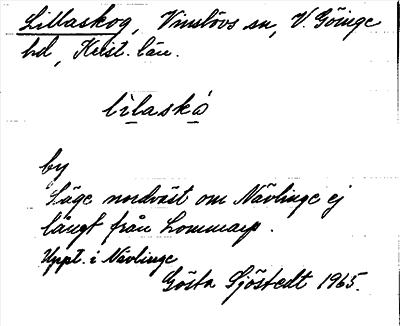 Lillaskog, Vinslövs sn, V. Göinge
hd, Krist. län.
lìlaskó
by
Läge nordväst om Nävlinge ej
långt från Lommarp.
Uppt. i Nävlinge
Gösta Sjöstedt 1965.